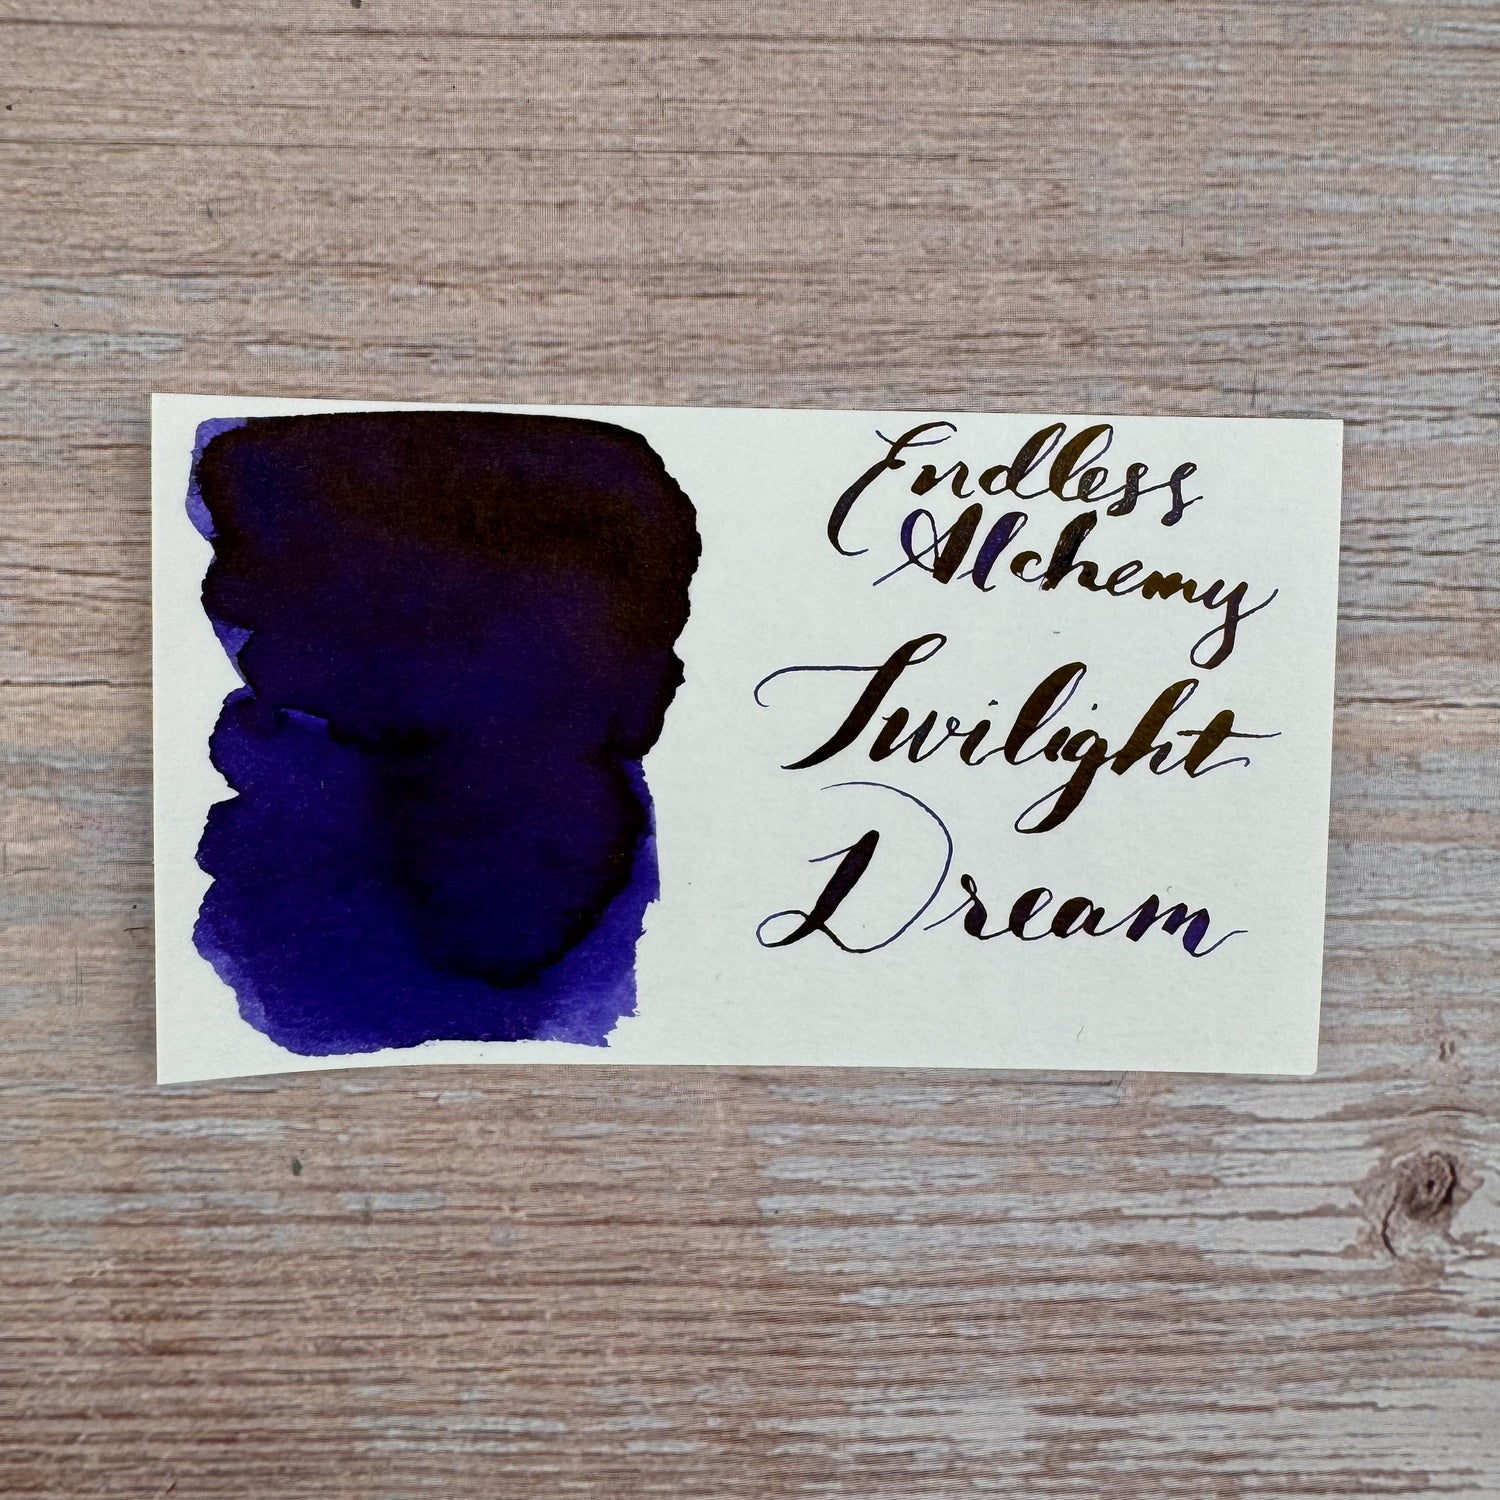 Endless
Alchemy
Twilight
Dream